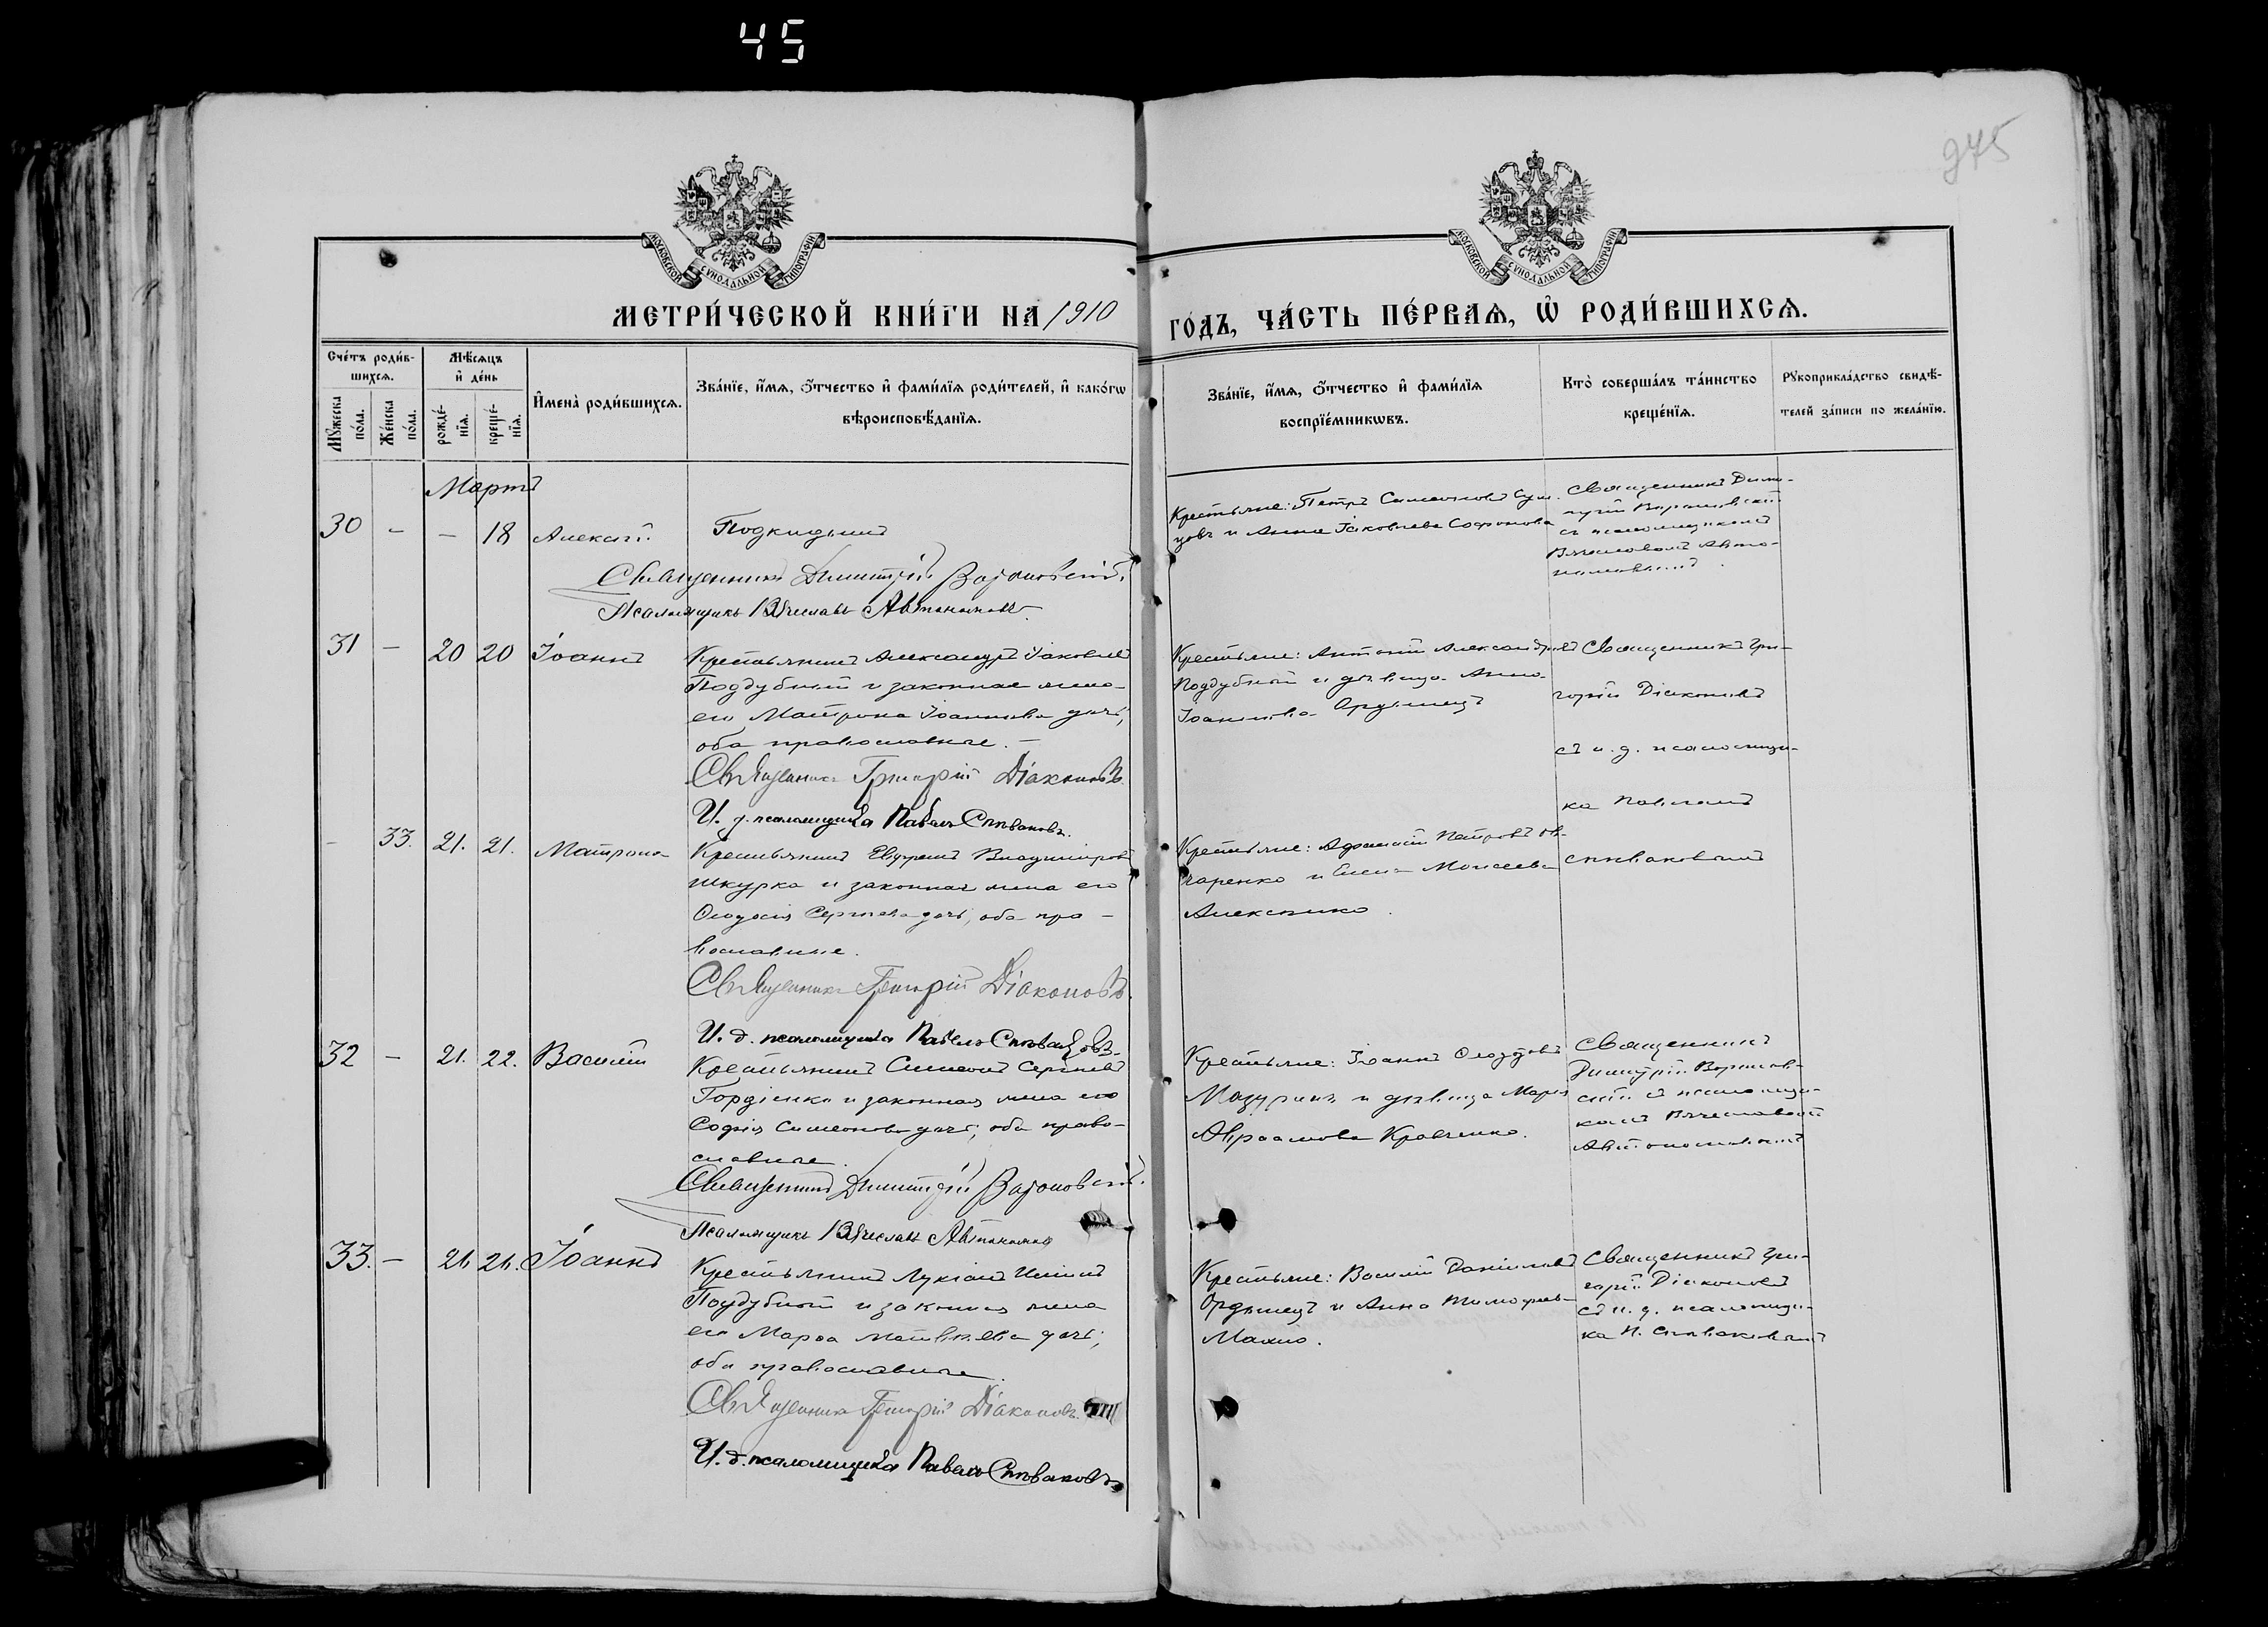 45
245
МОСКОВСКОЙ СѴНОДАЛЬНОЙ ТИПОГРАФІИ
МОСКОВСКОЙ СѴНОДАЛЬНОЙ ТИПОГРАФІИ
МЕТРИ́ЧЕСКОЙ КНИ́ГИ НА 1910
ГО́ДЪ, ЧА́СТЬ ПЕ́РВАѦ, Ѡ РОДИ́ВШИХСѦ.
Сче́тъ роди́в-
шихсѧ.
Мѣ́сѧцъ
и де́нь
Мꙋ́жеска
по́ла.
Же́нска
по́ла.
рожде́-
нїѧ.
креще́-
нїѧ.
Имена̀ роди́вшихсѧ.
Зва́нїе, и́мѧ, ѻ҆́тчество и фами́лїѧ роди́телей, и како́гѡ
вѣроисповѣ́данїѧ.
Зва́нїе, и́мѧ, ѻ҆́тчество и фами́лїѧ
воспрїе́мникѡвъ.
Кто̀ соверша́лъ та́инство
креще́нїѧ.
Рꙋкоприкла́дство свидѣ́-
телей за́писи по жела́нїю.
Мартъ
30 - - 18 Алексій
Подкидышъ
Крестьяне: Петръ Симеоновъ
и Анна Іаковлева Софронова
Священникъ Дими-
трій
съ псаломщикомъ
Вячеславомъ Авто-
номовымъ
Священникъ Димитрій
Псаломщикъ Вячеславъ Автономовъ
31 - 20 20 Іоаннъ
Крестьянинъ Александръ Іаковлевъ
Поддубный и законная жена
его Матрона Іоаннова дочь,
оба православные.
Священникъ Григорій Діаконовъ
И. д. псаломщика Павелъ Спѣваковъ.
Крестьяне: Антоній Александровъ
Поддубный и дѣвица Анна
Іоаннова Ордынецъ
Священникъ Гри-
горій Діаконовъ
съ и. д. псаломщи-
ка Павломъ
Спѣваковымъ
- 33. 21. 21. Матрона
Крестьянинъ Евфремъ Владиміровъ
Шкурка и законная жена его
Ѳеодосія Сергіева дочь, оба пра-
вославные.
Священникъ Григорій Діаконовъ
И. д. псаломщика Павелъ Спѣваковъ
Крестьяне: Петровъ Ов-
чаренко и Елена Моисеева
Алексенко.
32 - 21. 22. Василій
Крестьянинъ Симеонъ Сергіевъ
Гордіенко и законная жена его
Софія Симеонова дочь, оба право-
славные.
Священникъ Димитрій
Псаломщикъ Вячеславъ Автономовъ
Крестьяне: Іоаннъ Ѳеодоровъ
Мазуринъ и дѣвица Марія
Авраамова Кравченко.
Священникъ
Димитрій
съ псаломщи-
комъ Вячеславомъ
Автономовымъ
33. - 21. 21. Іоаннъ
Крестьянинъ Лукіанъ
Поддубный и законная жена
его Марѳа Матвѣева дочь,
оба православные.
Священникъ Григорій Діаконовъ.
И. д. псаломщика Павелъ Спѣваковъ
Крестьяне: Василій Даніиловъ
Ордынецъ и Анна Тимофеева
Махно.
Священникъ Гри-
горій Діаконовъ
съ и. д. псаломщи-
ка П. Спѣваковымъ